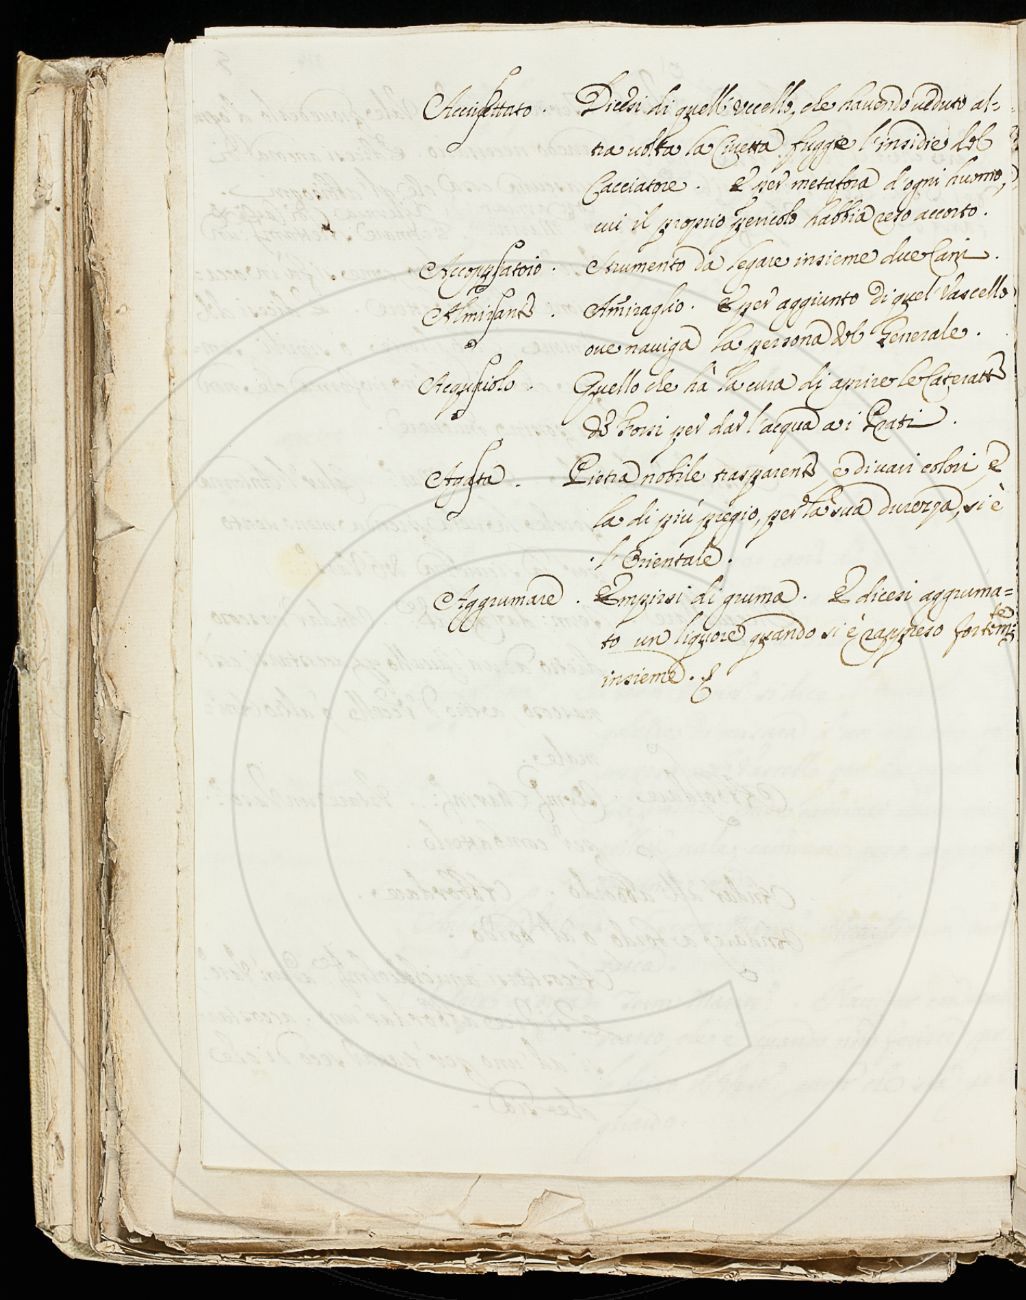 Accivettato. Dicesi di quell'uccello, che havendo veduto al=
tra volta la Civetta fugge l'insidie del
Cacciatore. E per metafora d'ogni huomo,
cui il proprio pericolo habbia reso accorto.
Accoppiatoio. Strumento da legare insieme due Cani.
Almirante. Amiraglio. E per aggiunto di quel Vascello
ove naviga la persona del Generale.
Acquaiolo. Quello che hà la cura di aprire le Cateratte
de fossi per dar l'acqua a i Prati.
Agata. Pietra nobile trasparente, e di vari colori, e
la di più pregio, per la sua durezza, si è
l'Orientale.
Aggrumare. Empirsi di gruma. E dicesi aggruma=
to un liquore quando si è rappreso fortem.te
insieme.